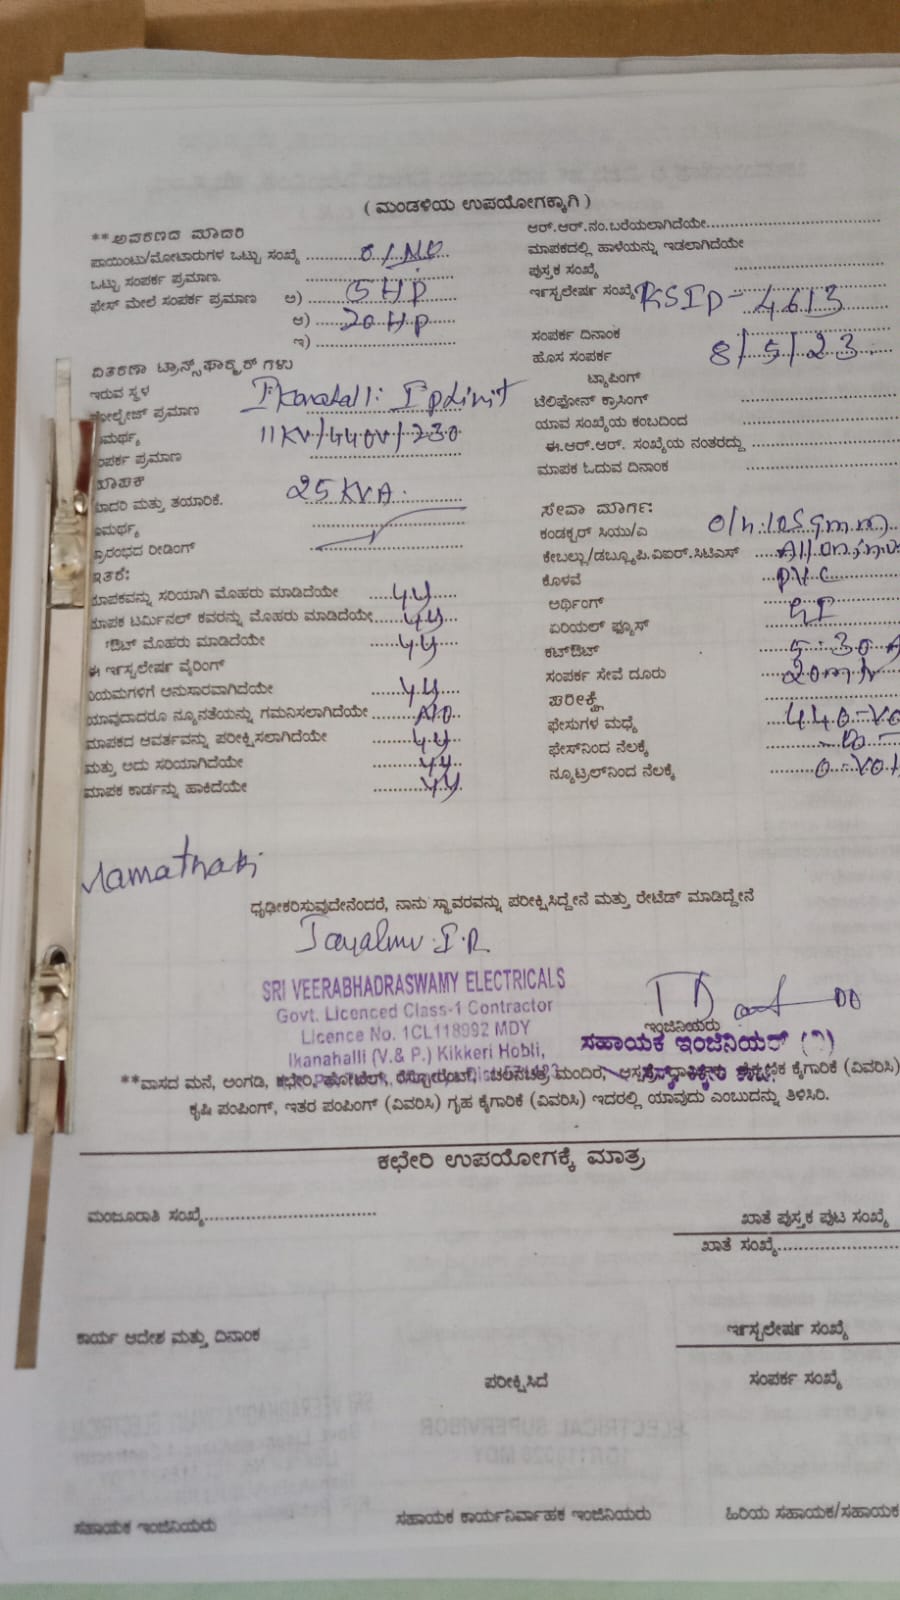 ( ಮಂಡಳಿಯ ಉಪಯೋಗಕ್ಕಾಗಿ )
**ಅವರಣದ ಮಾದರಿ
ಪಾಯಿಂಟು/ಮೋಟಾರುಗಳ ಒಟ್ಟು ಸಂಖ್ಯೆ
ಒಟ್ಟು ಸಂಪರ್ಕ ಪ್ರಮಾಣ.
ಫೇಸ್ ಮೇಲೆ ಸಂಪರ್ಕ ಪ್ರಮಾಣ ಅ) 5 HP
ಆ) 20 HP
ಇ)
ವಿತರಣಾ ಟ್ರಾನ್ಸ್‌ಫಾರ್ಮರ್ ಗಳು
ಇರುವ ಸ್ಥಳ
ವೋಲ್ಟೇಜ್ ಪ್ರಮಾಣ 11KV/440V/230
ಸಂಪರ್ಕ ಪ್ರಮಾಣ
ಮಾಪಕ 25 KVA.
ಮಾದರಿ ಮತ್ತು ತಯಾರಿಕೆ.
ಪ್ರಾರಂಭದ ರೀಡಿಂಗ್
ಇತರೆ:
ಮಾಪಕವನ್ನು ಸರಿಯಾಗಿ ಮೊಹರು ಮಾಡಿದೆಯೇ
ಮಾಪಕ ಟರ್ಮಿನಲ್ ಕವರನ್ನು ಮೊಹರು ಮಾಡಿದೆಯೇ
ಔಟ್ ಮೊಹರು ಮಾಡಿದೆಯೇ
ಈ ಇನ್ಸ್ಟಲೇಷನ್ ವೈರಿಂಗ್
ನಿಯಮಗಳಿಗೆ ಅನುಸಾರವಾಗಿದೆಯೇ
ಯಾವುದಾದರೂ ನ್ಯೂನತೆಯನ್ನು ಗಮನಿಸಲಾಗಿದೆಯೇ NO
ಮಾಪಕದ ಆವರ್ತವನ್ನು ಪರೀಕ್ಷಿಸಲಾಗಿದೆಯೇ
ಮತ್ತು ಅದು ಸರಿಯಾಗಿದೆಯೇ
ಮಾಪಕ ಕಾರ್ಡನ್ನು ಹಾಕಿದೆಯೇ
ಆರ್.ಆರ್.ನಂ.ಬರೆಯಲಾಗಿದೆಯೇ
ಮಾಪಕದಲ್ಲಿ ಹಾಳೆಯನ್ನು ಇಡಲಾಗಿದೆಯೇ
ಪುಸ್ತಕ ಸಂಖ್ಯೆ
ಇನ್ಸ್ಟಲೇಷನ್ ಸಂಖ್ಯೆ KSIP-4613
ಸಂಪರ್ಕ ದಿನಾಂಕ
ಹೊಸ ಸಂಪರ್ಕ 8/5/23
ಟ್ಯಾಪಿಂಗ್
ಟೆಲಿಫೋನ್ ಕ್ರಾಸಿಂಗ್
ಯಾವ ಸಂಖ್ಯೆಯ ಕಂಬದಿಂದ
ಈ.ಆರ್.ಆರ್. ಸಂಖ್ಯೆಯ ನಂತರದ್ದು
ಮಾಪಕ ಓದುವ ದಿನಾಂಕ
ಸೇವಾ ಮಾರ್ಗ:
ಕಂಡಕ್ಟರ್ ಸಿಯು/ಎ
ಕೇಬಲ್ಲು/ಡಬ್ಲೂಪಿ.ವಿಐರ್.ಸಿಟಿಎಸ್
ಕೊಳವೆ P.V.C
ಅರ್ಥಿಂಗ್ GI
ಏರಿಯಲ್ ಫ್ಯೂಸ್
ಕಟ್‌ಔಟ್
ಸಂಪರ್ಕ ಸೇವೆ ದೂರು
ಪರೀಕ್ಷೆ
ಫೇಸುಗಳ ಮಧ್ಯೆ
ಫೇಸ್‌ನಿಂದ ನೆಲಕ್ಕೆ
ನ್ಯೂಟ್ರಲ್‌ನಿಂದ ನೆಲಕ್ಕೆ
ಧೃಢೀಕರಿಸುವುದೇನೆಂದರೆ, ನಾನು ಸ್ಥಾವರವನ್ನು ಪರೀಕ್ಷಿಸಿದ್ದೇನೆ ಮತ್ತು ರೇಟೆಡ್ ಮಾಡಿದ್ದೇನೆ
SRI VEERABHADRASWAMY ELECTRICALS
Govt. Licenced Class-1 Contractor
Licence No. 1CL118992 MDY
Ikanahalli (V.& P.) Kikkeri Hobli,
ಇಂಜಿನಿಯರು
ಸಹಾಯಕ ಇಂಜಿನಿಯರ್ (ವಿ)
**ವಾಸದ ಮನೆ, ಅಂಗಡಿ, ಕಛೇರಿ, ಹೋಟೆಲ್, ರೆಸ್ಟೋರೆಂಟ್, ಚಲನಚಿತ್ರ ಮಂದಿರ, ಕೈಗಾರಿಕೆ (ವಿವರಿಸಿ)
ಕೃಷಿ ಪಂಪಿಂಗ್, ಇತರ ಪಂಪಿಂಗ್ (ವಿವರಿಸಿ) ಗೃಹ ಕೈಗಾರಿಕೆ (ವಿವರಿಸಿ) ಇದರಲ್ಲಿ ಯಾವುದು ಎಂಬುದನ್ನು ತಿಳಿಸಿರಿ.
ಕಛೇರಿ ಉಪಯೋಗಕ್ಕೆ ಮಾತ್ರ
ಮಂಜೂರಾತಿ ಸಂಖ್ಯೆ
ಖಾತೆ ಪುಸ್ತಕ ಪುಟ ಸಂಖ್ಯೆ
ಖಾತೆ ಸಂಖ್ಯೆ
ಕಾರ್ಯ ಆದೇಶ ಮತ್ತು ದಿನಾಂಕ
ಇನ್ಸ್ಟಲೇಷನ್ ಸಂಖ್ಯೆ
ಪರೀಕ್ಷಿಸಿದೆ
ಸಂಪರ್ಕ ಸಂಖ್ಯೆ
ಸಹಾಯಕ ಇಂಜಿನಿಯರು
ಸಹಾಯಕ ಕಾರ್ಯನಿರ್ವಾಹಕ ಇಂಜಿನಿಯರು
ಹಿರಿಯ ಸಹಾಯಕ/ಸಹಾಯಕ